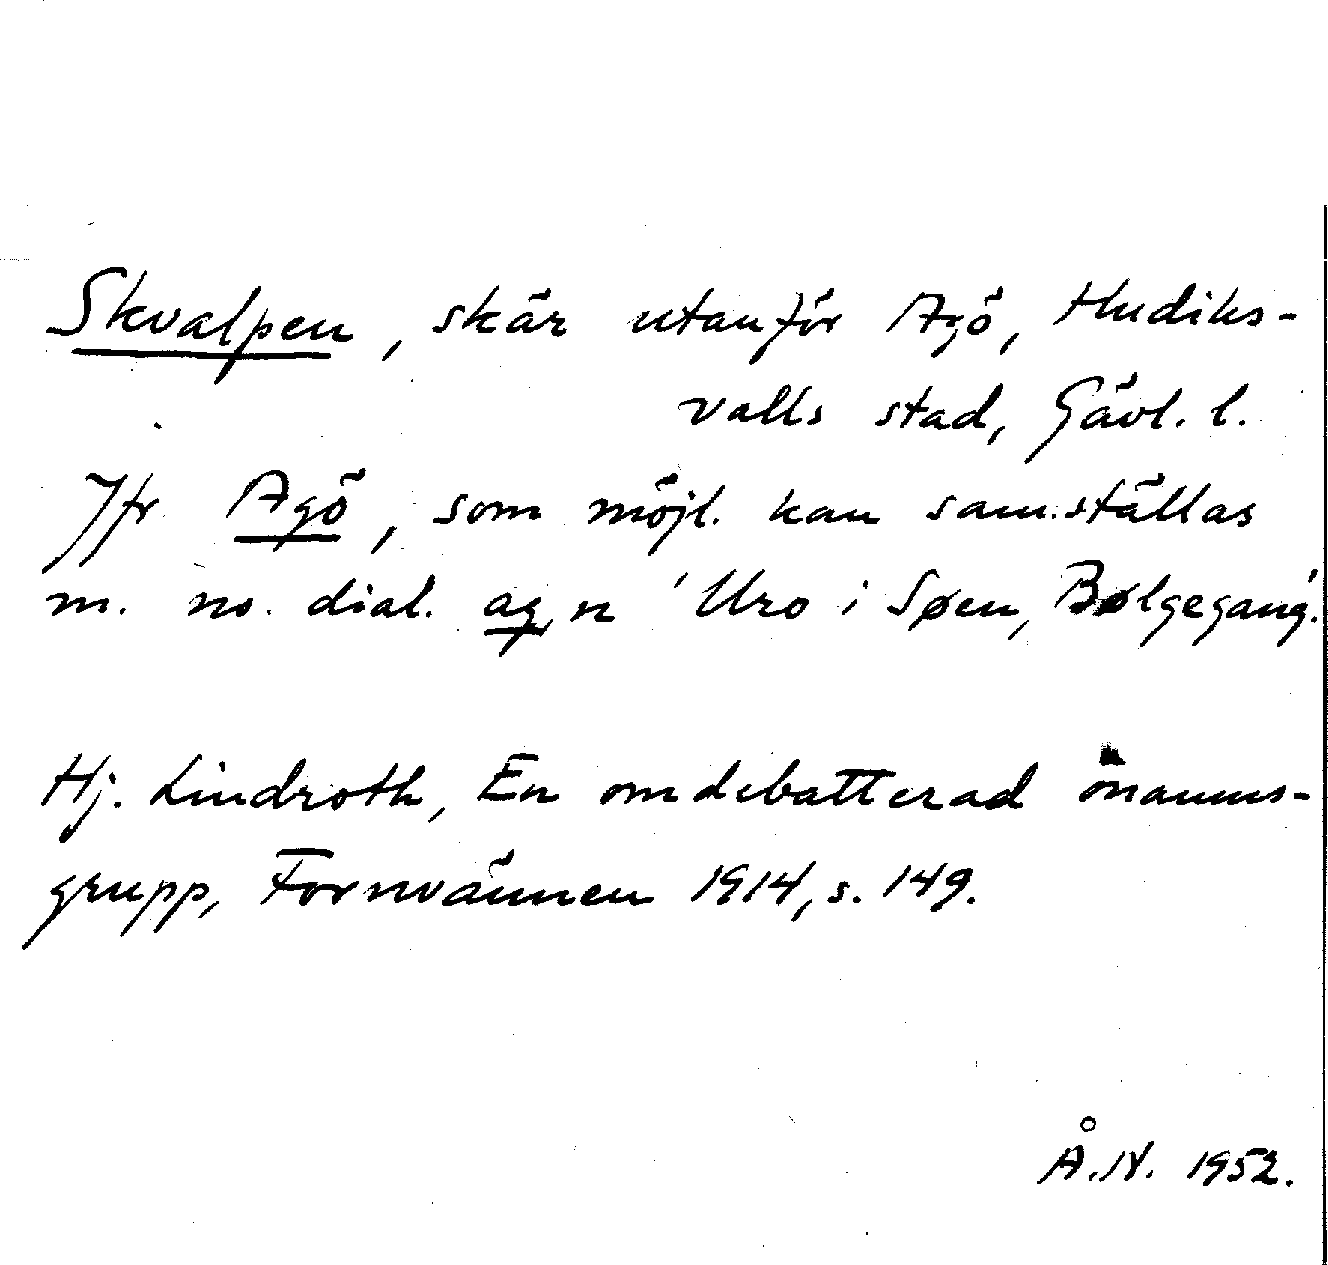 Skvalpen, skär utanför Agö, Hudiks-
valls stad, Gävl. l.
Jfr Agö, som möjl. kan sam.ställas
m. no. dial. ag, n 'Uro i Søen, Bølgegang'.
Hj. Lindroth, En omdebatterad önamns-
grupp, Fornvännen 1914, s. 149.
Å.N. 1952.